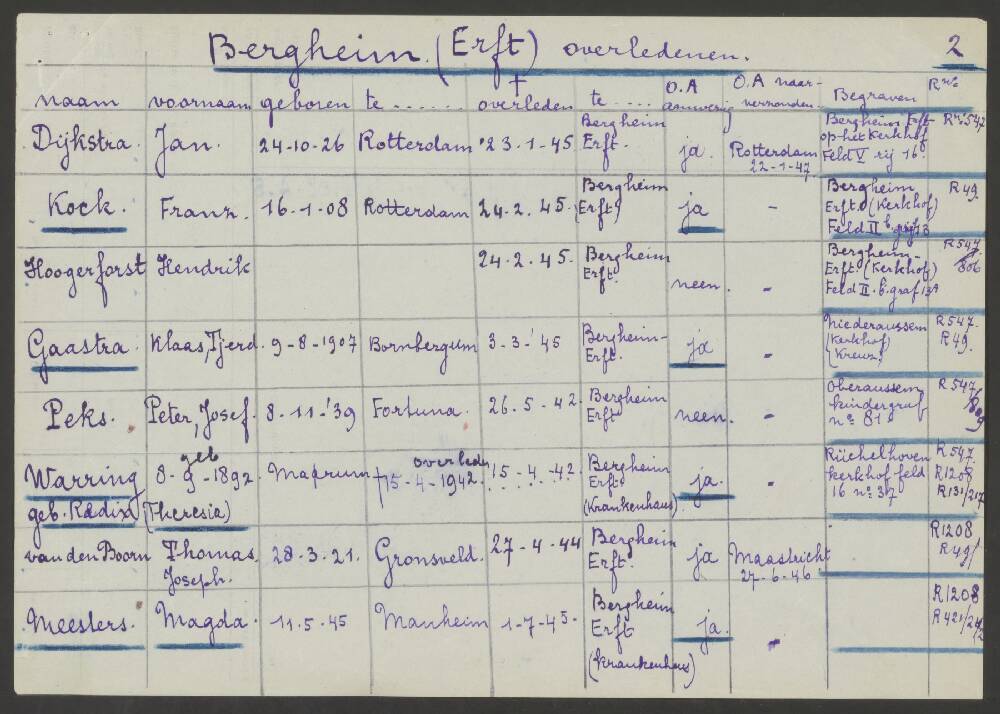 Bergheim. (Erft) overledenen. 2
naam voornaam geboren te ...... † overleden te .... O.A aanwezig O.A naar- verzonden. Begraven R no
Dijkstra. Jan. 24-10-26 Rotterdam 23.1-45 Bergheim Erft. ja. Rotterdam 22-1-47. Bergheim Erft op het Kerkhof Feld V rij 16. R no 547
Kock. Franz. 16-1-08 Rotterdam 24-2.45. Bergheim (Erft) ja - Bergheim Erft. (Kerkhof) Feld II b. graf 13 R 49.
Hoogerforst Hendrik 24-2-45. Bergheim Erft. neen. - Bergheim- Erft. (Kerkhof) Feld II. b. graf 13A R 547 806
Gaastra. Klaas, Tjerd. 9-8-1907 Bornbergum 3-3-'45 Bergheim- Erft. ja - Niederaussem (Kerkhof) (Kreuz) R 547. R 49.
Peks. Peter, Josef. 8-11-'39 Fortuna. 26.5-42. Bergheim Erft neen. - Oberaussem kindergraf no 81. R 547/
Warring geb. Rædix (Theresia) geb 8-9-1892. overleden †15-4-1942. 15-4-42. Bergheim Erft. (Krankenhaus) ja. - Kerkhof feld 16 no 37 R 547. R1208 R131/217
van den Boorn Thomas. Joseph. 28-3-21. Gronsveld. 27-4-44 Bergheim Erft. ja Maastricht 27-6-46 R1208 R 49/
Meesters. Magda. 11.5-45 Manheim 1-7-45. Bergheim Erft (Krankenhaus) ja. - R1208